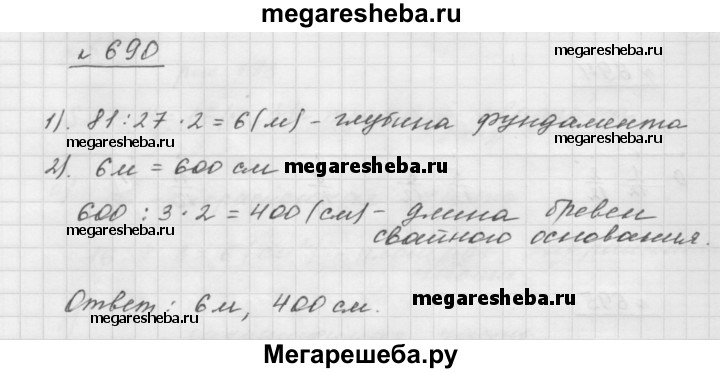 megaresheba.ru
№ 690
megaresheba.ru
1). 81 : 27 · 2 = 6 (м) - глубина фундамента
megaresheba.ru megaresheba.ru
2). 6 м = 600 см megaresheba.ru
600 : 3 · 2 = 400 (см) - длина бревен
свайного основания.
Ответ: 6 м, 400 см. megaresheba.ru
megaresheba.ru
Мегарешеба.ру